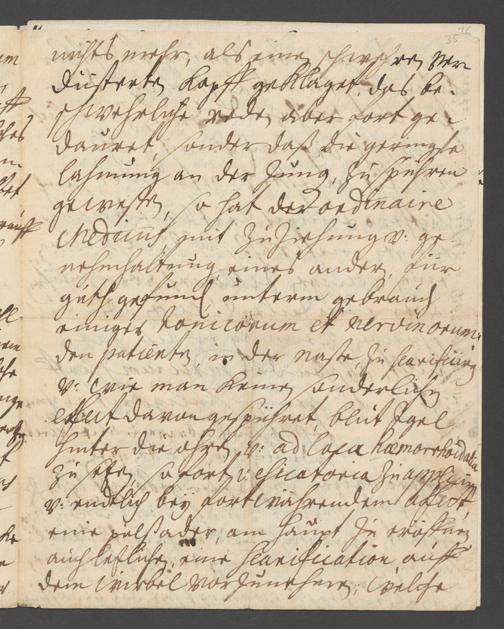 35
nichts mehr, als einen schwehren ver
düsterten Kopff geklaget, das be-
schwehrliche reden aber fort ge-
dauret, sonder daß die geringste
lahmung an der Zung zu spühren
gewesen, so hat der ordinaire
Medicus, mit Zuziehung v: ge
nehmhaltung eines andern, für
guth gefund unterm gebrauch
einiger tonicorum et nervinorum
den patienten, in der nase zu scarificiren
v: wie man keinen sonderlichen
effect davon gespühret, blut Igel
hinter die ohren, v: ad loca hæmorrhoidalia
zu sezen, so fort vesicatoria zu appliciren
v: endlich bey fortwährendem
eine pulsader, am haupt zu eröffnen
auch lestlich, eine scarification auff
dem wirbel vorzunehmen, welche